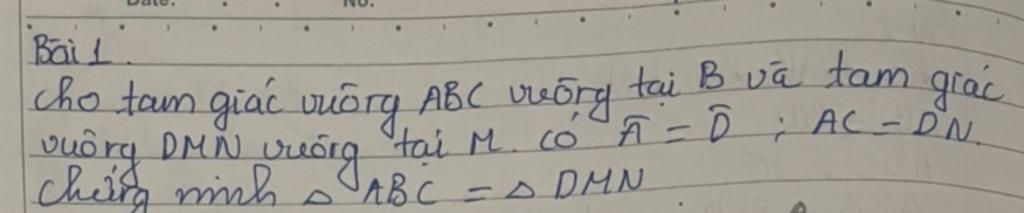 Date.
No.
Bài 1.
cho tam giác vuông ABC vuông tại B và tam giác
vuông DMN vuông tại M. có Â = D̂ ; AC = DN.
chứng minh △ ABC = △ DMN